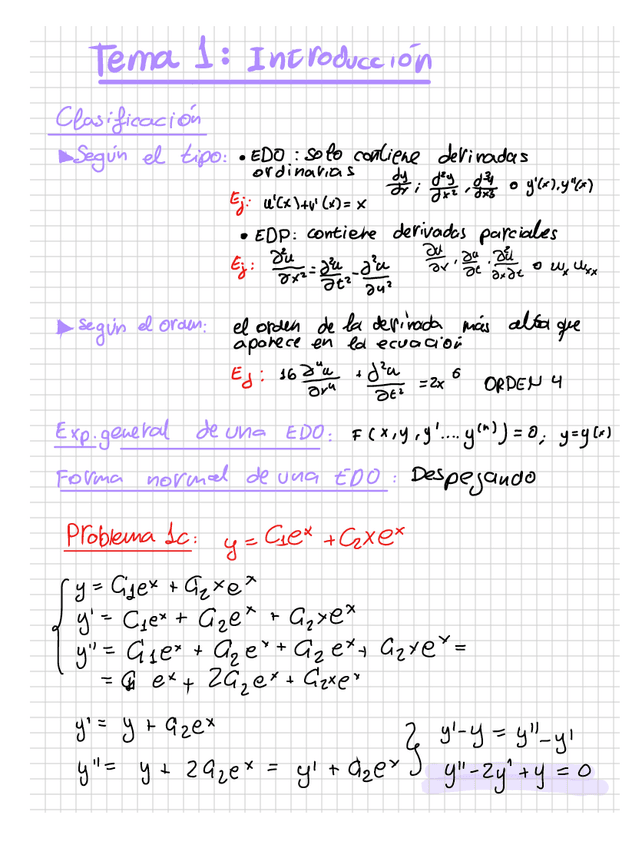 Tema 1: Introducción
Clasificación
▶Según el tipo: • EDO: solo contiene derivadas
ordinarias dy/dx ; d²y/dx² , d³y/dx³ o y'(x), y''(x)
Ej: u'(x)+v'(x) = x
• EDP: contiene derivadas parciales
Ej: ∂²u/∂x² = ∂²u/∂t² - ∂²u/∂y² ∂u/∂x , ∂u/∂t , ∂²u/∂x∂t o uₓ uₓₓ
▶Según el orden: el orden de la derivada más alta que
aparece en la ecuación
Ej: 16 ∂⁴u/∂r⁴ + ∂²u/∂t² = 2x⁶ ORDEN 4
Exp. general de una EDO: F(x, y, y'.... y⁽ⁿ⁾) = 0; y=y(x)
Forma normal de una EDO: Despejando
Problema 1c: y = C₁eˣ + C₂xeˣ
y = C₁eˣ + C₂xeˣ
y' = C₁eˣ + C₂eˣ + C₂xeˣ
y'' = C₁eˣ + C₂eˣ + C₂eˣ + C₂xeˣ =
= C₁ eˣ + 2C₂eˣ + C₂xeˣ
y' = y + C₂eˣ
y'' = y + 2C₂eˣ = y' + C₂eˣ } y'-y = y''-y'
y''-2y'+y = 0